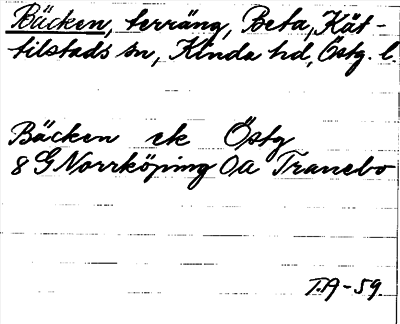 Bäcken, terräng, Beta, Kät-
tilstads sn, Kinda hd, Östg. l.
Bäcken ek Östg
8 G Norrköping 0a Tranebo
T.A-59.